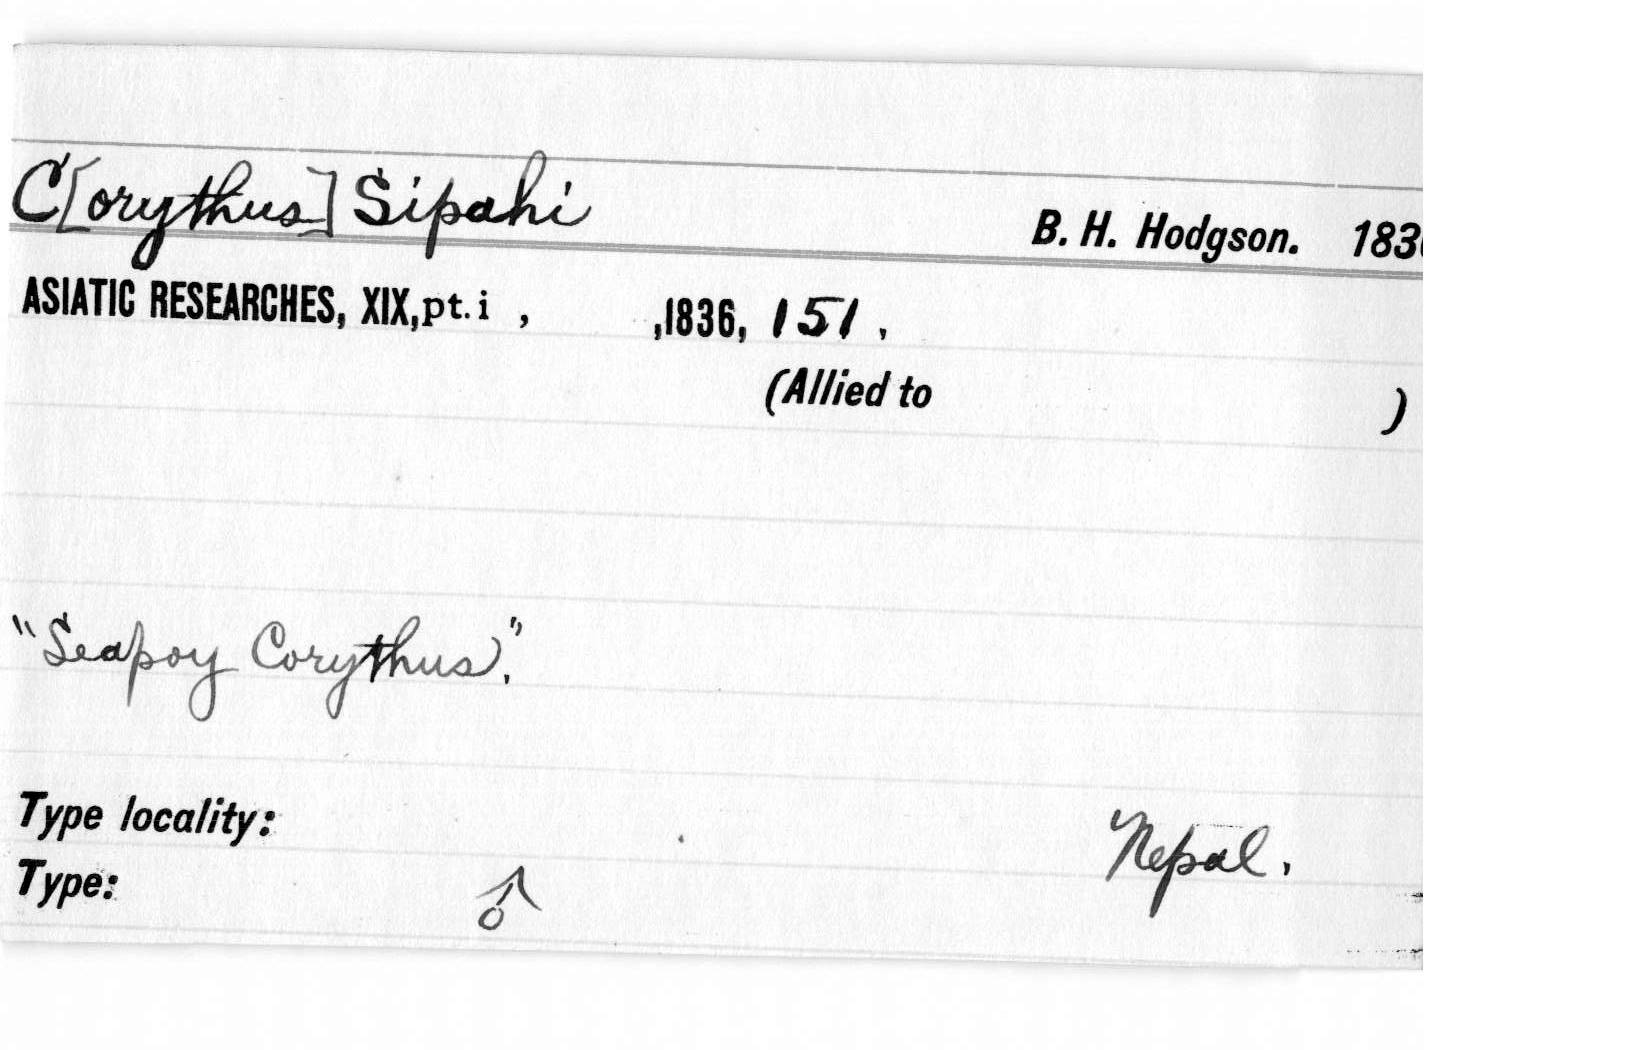 C[orythus] Sipahi
B. H. Hodgson. 183
ASIATIC RESEARCHES, XIX, pt. i , ,1836, 151.
(Allied to )
"Seapoy Corythus".
Type locality: Nepal.
Type: ♂